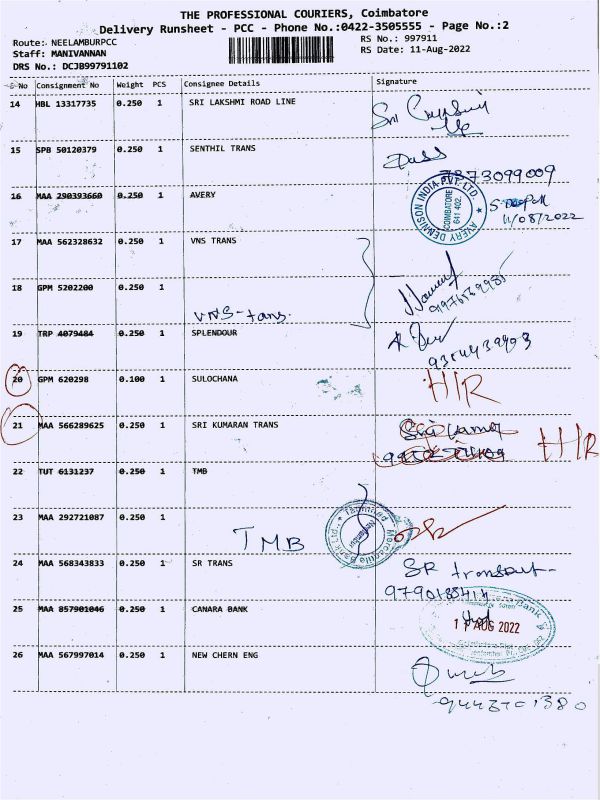 THE PROFESSIONAL COURIERS, Coimbatore
Delivery Runsheet - PCC - Phone No.:0422-3505555 - Page No.:2
Route: NEELAMBURPCC
RS No.: 997911
Staff: MANIVANNAN
RS Date: 11-Aug-2022
DRS No.: DCJB99791102
No Consignment No Weight PCS Consignee Details Signature
14 HBL 13317735 0.250 1 SRI LAKSHMI ROAD LINE
Sri
15 SPB 50120379 0.250 1 SENTHIL TRANS
7373099009
16 MAA 290393660 0.250 1 AVERY
AVERY DENNISON INDIA PVT. LTD
COIMBATORE
641 402.
11/08/2022
17 MAA 562328632 0.250 1 VNS TRANS
18 GPM 5202200 0.250 1
VNS-tans.
19 TRP 4079484 0.250 1 SPLENDOUR
20 GPM 620298 0.100 1 SULOCHANA
HIR
21 MAA 566289625 0.250 1 SRI KUMARAN TRANS
HIR
22 TUT 6131237 0.250 1 TMB
23 MAA 292721087 0.250 1
TMB
Tamilnad Mercantile Bank Ltd.
24 MAA 568343833 0.250 1 SR TRANS
SR
25 MAA 857901046 0.250 1 CANARA BANK
Bank
11 AUG 2022
26 MAA 567997014 0.250 1 NEW CHERN ENG